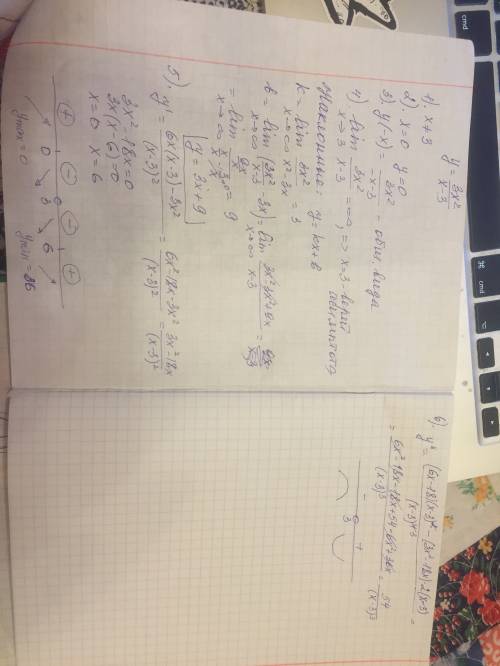 y = 3x²/(x-3)
1) x ≠ 3
2). x = 0 y = 0
3) y(-x) = 3x²/(-x-3) - общ. вида
4) lim x→3 3x²/(x-3) = ∞, ⇒ x = 3 - верт. асимптота
наклонные: y = kx + b
k = lim x→∞ 3x²/(x²-3x) = 3
b = lim x→∞ (3x²/(x-3) - 3x) = lim x→∞ (3x²-3x²+9x)/(x-3) =
= lim x→∞ = 9
y = 3x + 9
5). y' = (6x(x-3) - 3x²)/(x-3)² = (6x²-18x-3x²)/(x-3)² = (3x²-18x)/(x-3)²
3x² - 18x = 0
3x(x-6) = 0
x = 0 x = 6
+ - - +
0 3 6
ymax = 0 ymin = 36
6). y'' = ((6x-18)(x-3)² - (3x²-18x)·2(x-3))/(x-3)⁴ =
= (6x²-18x-18x+54-6x²+36x)/(x-3)³ = 54/(x-3)³
- +
3
command